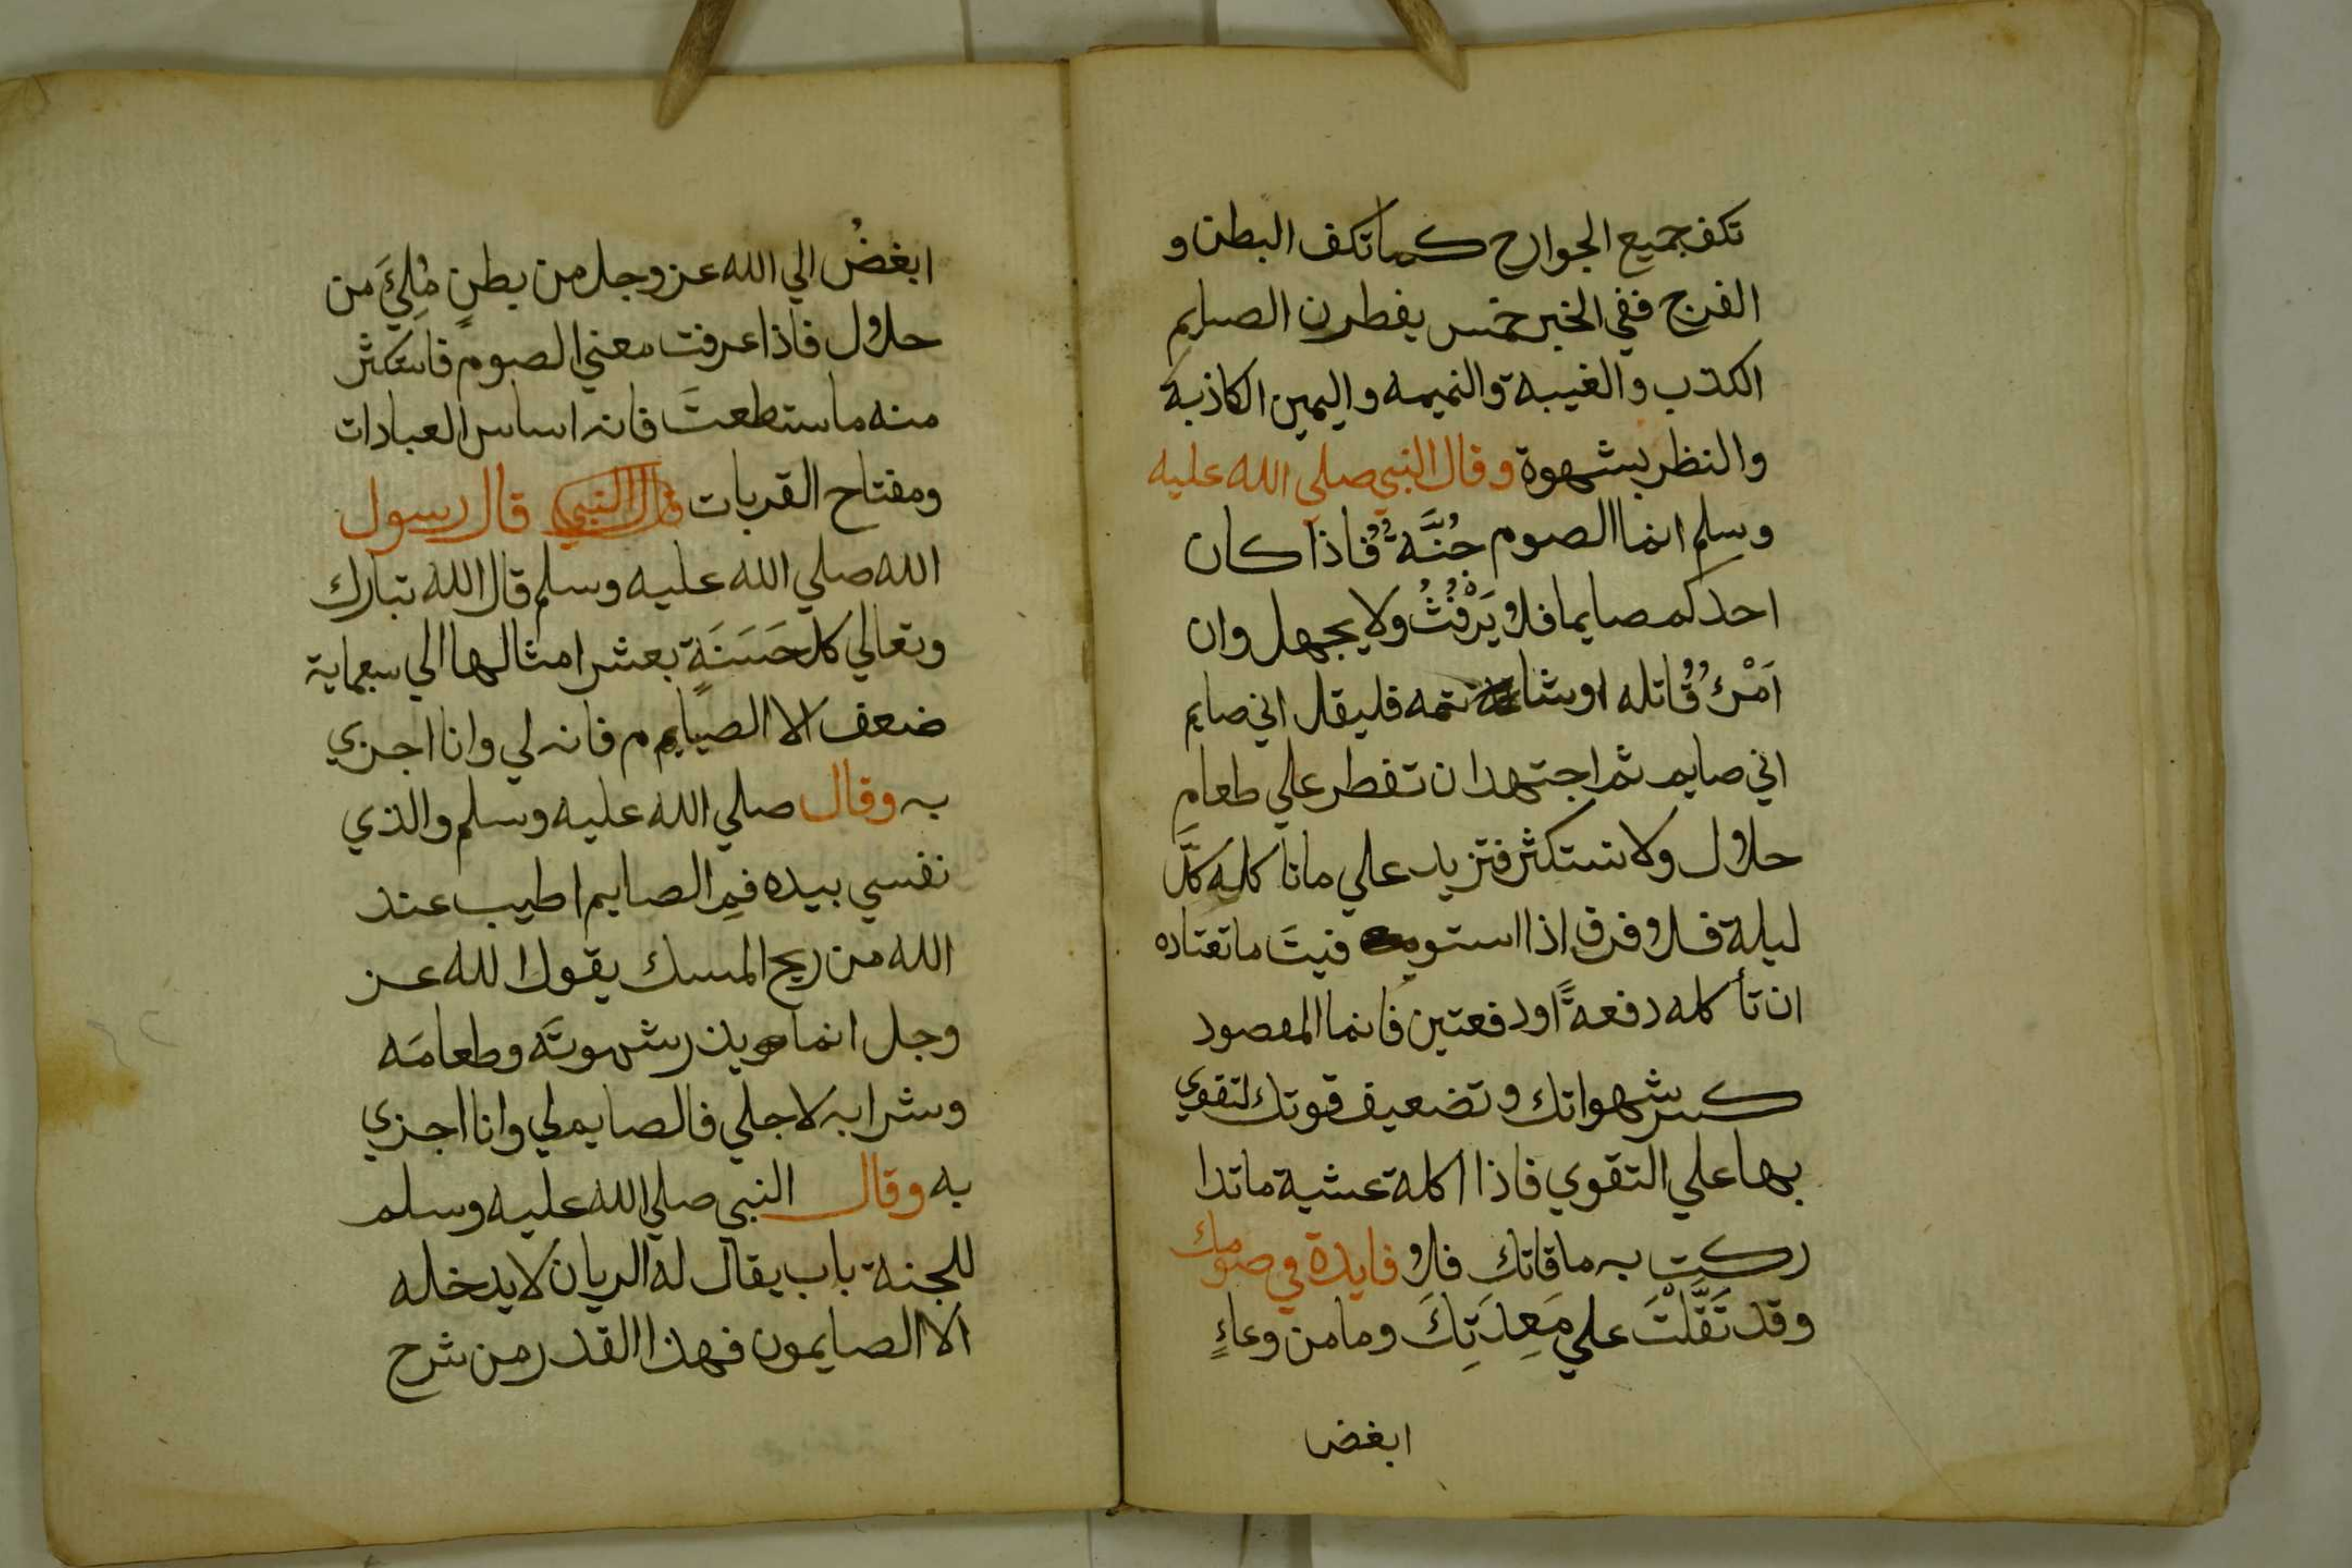 تكف جميع الجوارح كما تكف البطن و
الفرج ففي الخبر خمس يفطرن الصايم
الكذب والغيبة والنميمه واليمين الكاذبة
والنظر بشهوة وقال النبي صلي الله عليه
وسلم انما الصوم جُنَّةٌ فاذا كان
احدكم صايما فلا يَرْفُثُ ولا يجهل وان
اَمْرُؤٌ قاتله اوشا تمه فليقل اني صايم
اني صايم ثم اجتهد ان تفطر علي طعامٍ
حلال ولا تستكثر فتزيد علي ما تاكله كلَّ
ليلة فلا فرق اذا استو فيتَ ما تعتاده
ان تأكله دفعةً او دفعتين فانما المقصود
كسر شهواتك وتضعيف قوتك لتقوي
بها علي التقوي فاذا اكلة عشية ماتدا
ركت به ما فاتك فلا فايدة في صومك
وقد ثَقَّلْتَ علي مَعِدَتِكَ وما من وعاءٍ
ابغض
ابغضُ الي الله عز وجل من بطنٍ مُلِئَ من
حلال فاذا عرفت معني الصوم فاستكثر
منه ماستطعتَ فانه اساس العبادات
ومفتاح القربات قال النبي قال رسول
الله صلي الله عليه وسلم قال الله تبارك
وتعالي كل حَسَنَةٍ بعشر امثالها الي سبعماية
ضعف الا الصيام فانه لي وانا اجزي
به وقال صلي الله عليه وسلم والذي
نفسي بيده فمِ الصايم اطيب عند
الله من ريح المسك يقول الله عز
وجل انما يذر شهوتَه وطعامَه
وشرابه لاجلي فالصايم لي وانا اجزي
به وقال النبي صلي الله عليه وسلم
للجنة باب يقال له الريان لا يدخله
الا الصايمون فهذا القدر من شرح